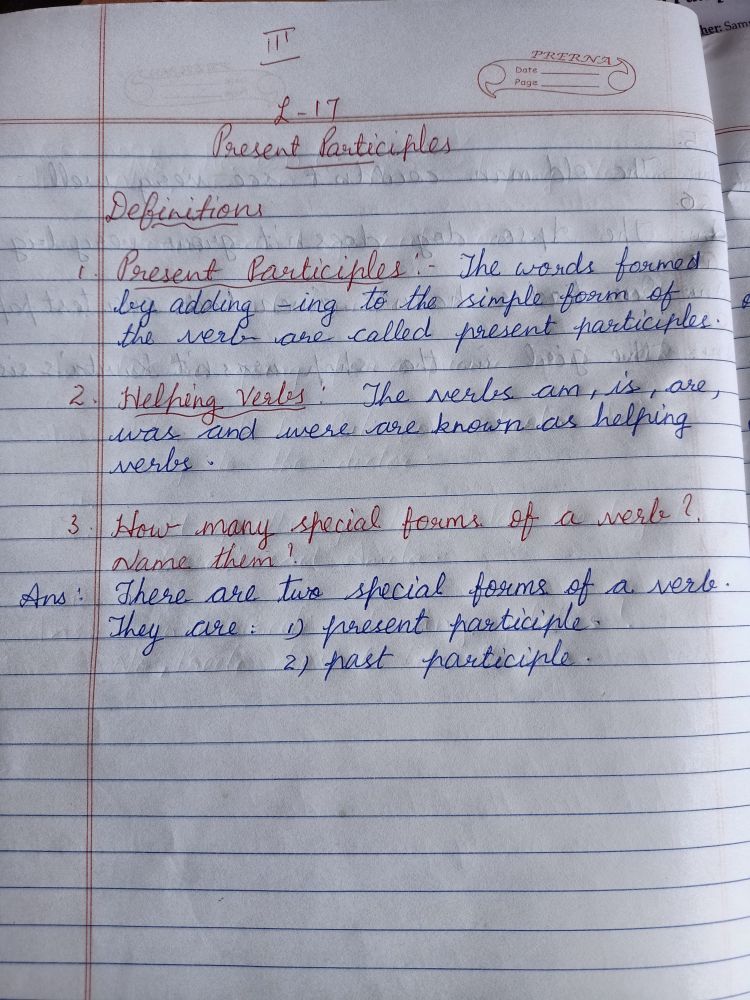 her: Sam
III
PRERNA
Date
Page
L-17
Present Participles
Definitions
1. Present Participles :- The words formed
by adding -ing to the simple form of
the verb are called present participles.
2. Helping Verbs : The verbs am, is, are,
was and were are known as helping
verbs.
3. How many special forms of a verb?
Name them?
Ans: There are two special forms of a verb.
They are: 1) present participle.
2) past participle.